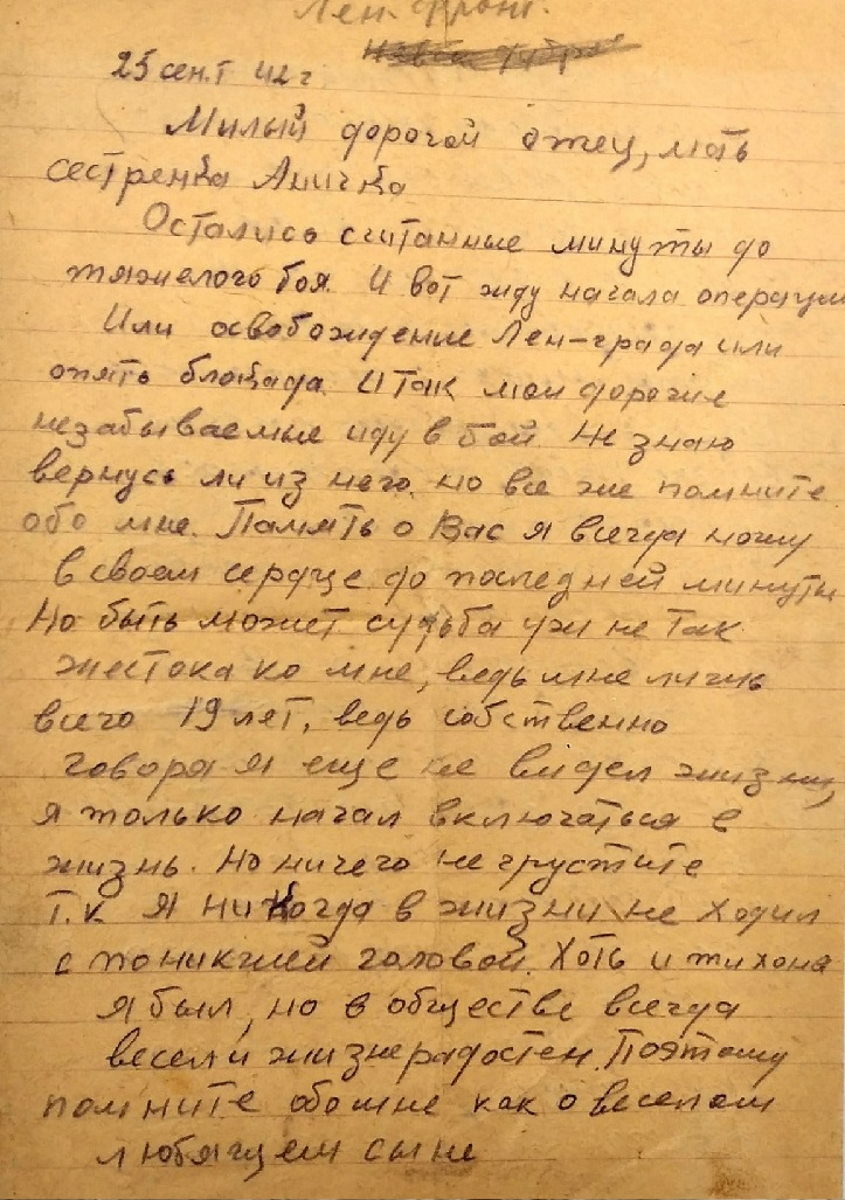 Лен. фронт.
25 сен.т 42 г
Милый дорогой отец, мать
сестренка Аничка
Остались считанные минуты до
тяжелого боя. И вот жду начала операции
Или освобождение Лен-града или
опять блокада. Итак мои дорогие
незабываемые иду в бой. Не знаю
вернусь ли из него. но все же помните
обо мне. Память о Вас я всегда ношу
в своем сердце до последней минуты
Но быть может судьба уж не так
жестока ко мне, ведь мне лишь
всего 19 лет, ведь собственно
говоря я еще не видел жизни,
я только начал включаться в
жизнь. Но ничего не грустите
т.к я никогда в жизни не ходил
с поникшей головой. Хоть и тихоня
я был, но в обществе всегда
весел и жизнерадостен. Поэтому
помните обо мне как о веселом
любящем сыне